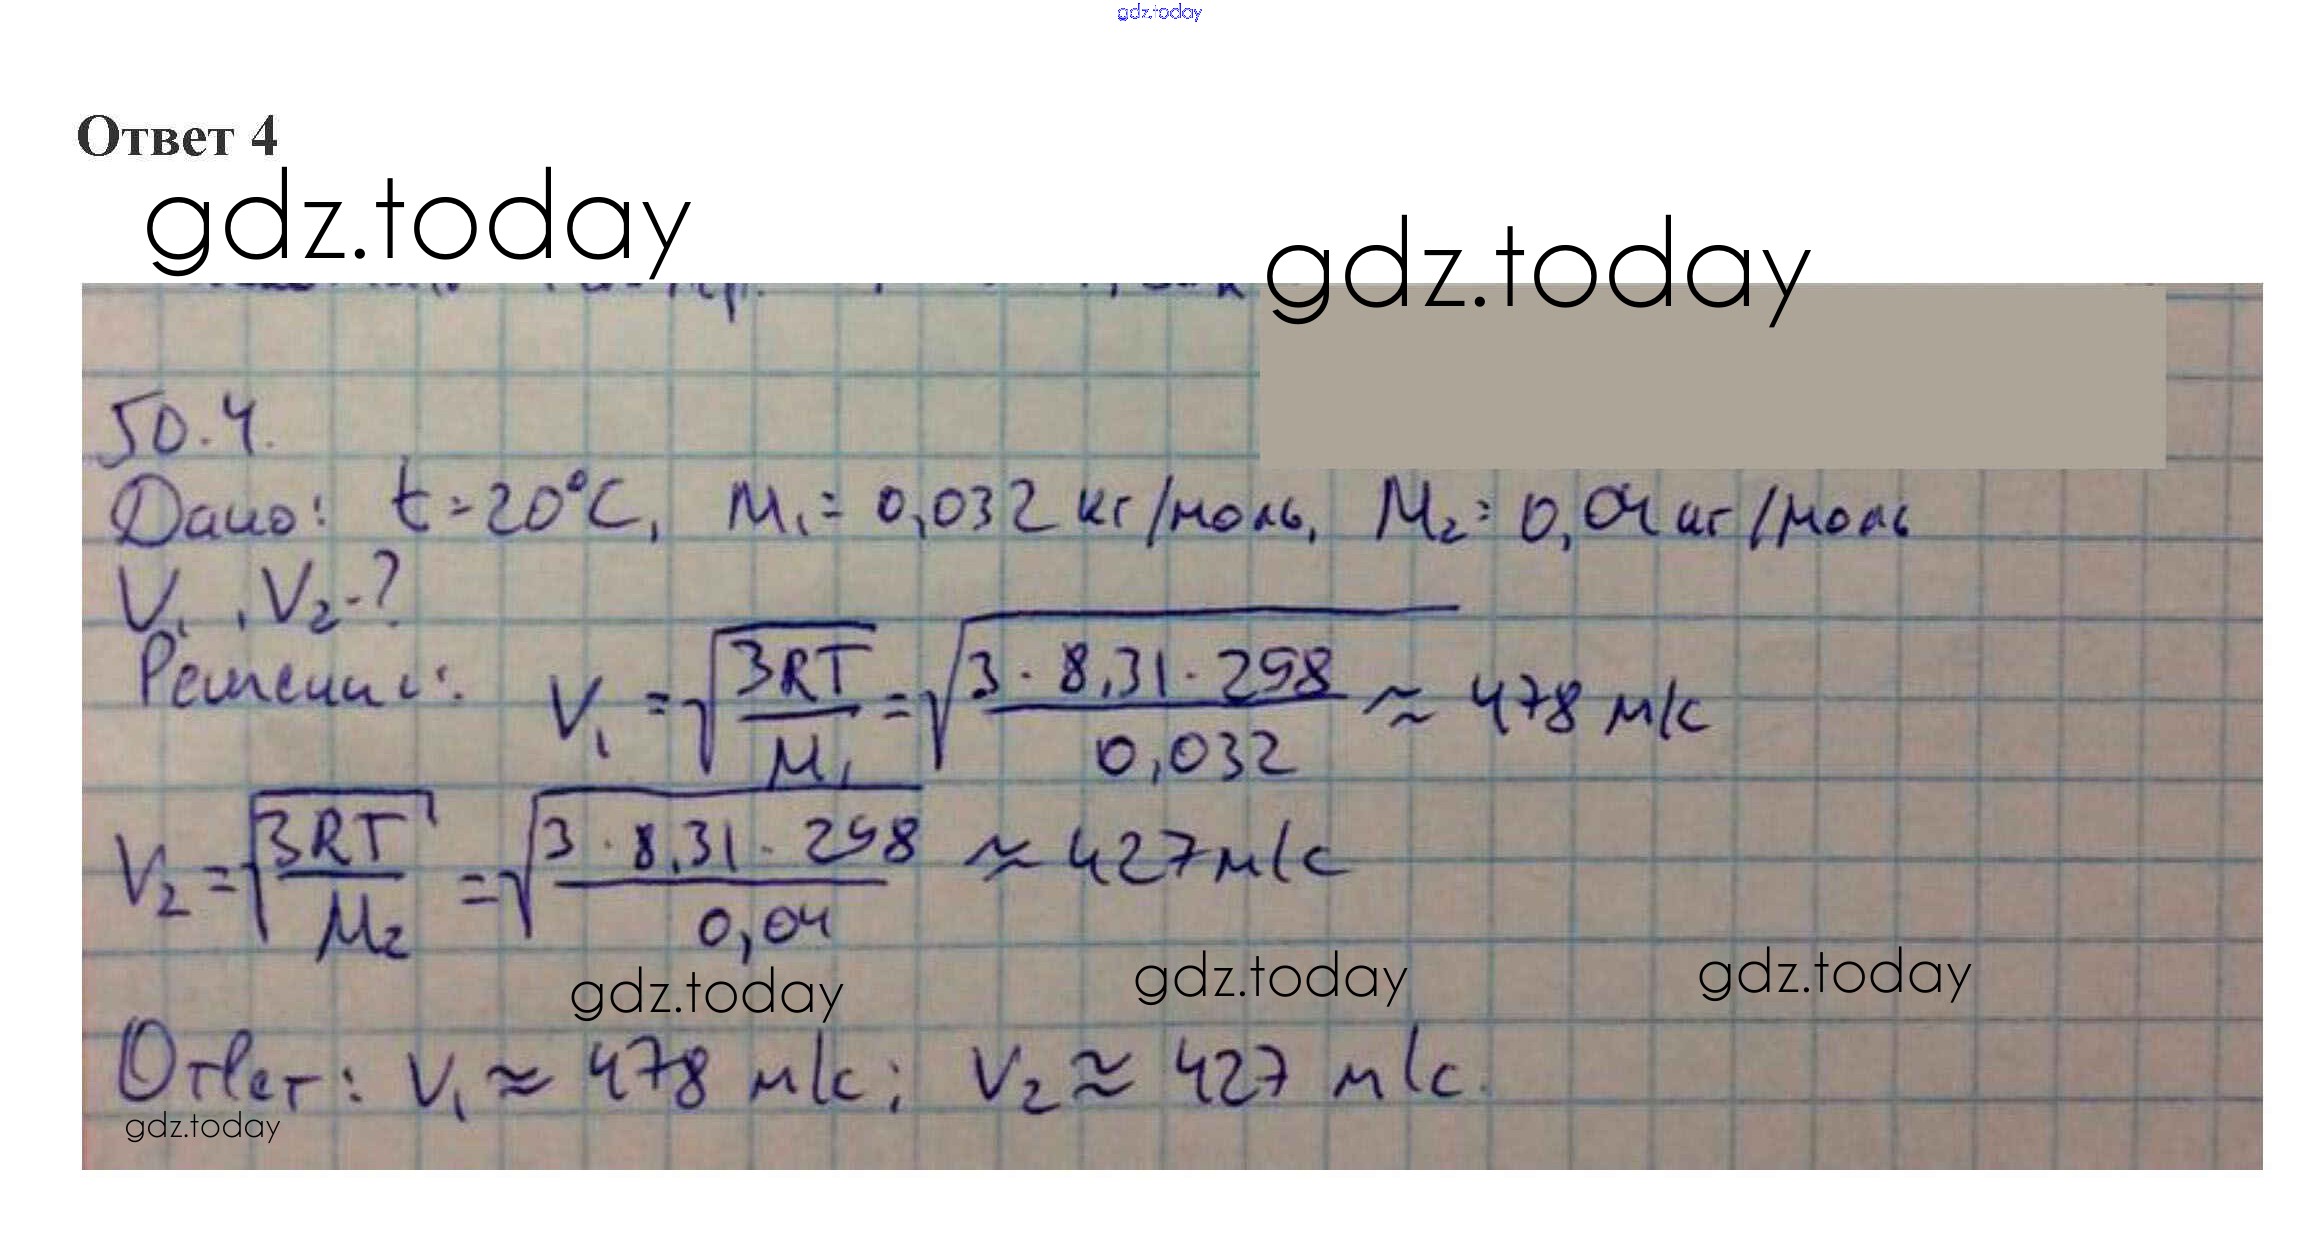 gdz.today
Ответ 4
gdz.today
gdz.today
50.4.
Дано: t=20°C, M₁= 0,032 кг/моль, M₂= 0,04 кг/моль
V₁, V₂-?
Решение: V₁ = √(3RT/M₁) = √(3·8,31·298/0,032) ≈ 478 м/с
V₂ = √(3RT/M₂) = √(3·8,31·298/0,04) ≈ 427 м/с
gdz.today
gdz.today
gdz.today
Ответ: V₁ ≈ 478 м/с; V₂ ≈ 427 м/с.
gdz.today